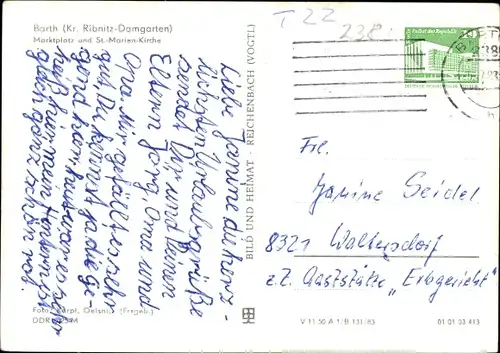 Barth (Kr. Ribnitz-Damgarten)
Marktplatz und St.-Marien-Kirche
T 22
238
Palast der Republik
Liebe Janine die herz-
lichsten Urlaubsgrüße
sendet Dir und Deinen
Eltern Jörg, Oma und
Opa. Mir gefällt es sehr
gut, Du kennst ja die Ge-
gend hier,
ganz schön rot
BILD UND HEIMAT REICHENBACH (VOGTL)
Frl.
Janine Seidel
8321 Waltersdorf
z.Z. Gaststätte „Erbgericht"
Foto: Karpf, Oelsnitz (Erzgeb.)
V 11 50 A 1/B 131/83
01 01 03 413